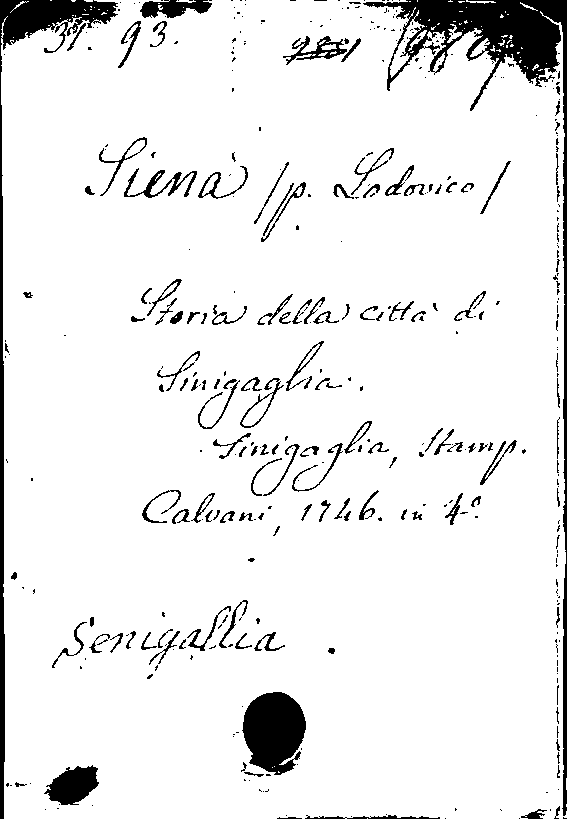 31. 93.
Siena /p. Lodovico/
Storia della città di
Sinigaglia.
Sinigaglia, Stamp.
Calvani, 1746. in 4º
Senigallia.